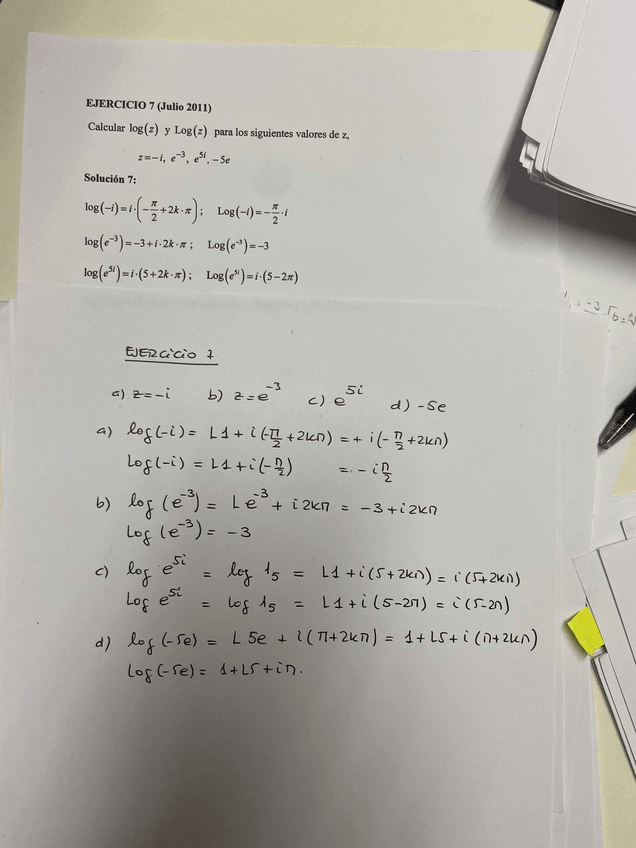 EJERCICIO 7 (Julio 2011)
Calcular log(z) y Log(z) para los siguientes valores de z,
z=−i, e⁻³, e⁵ⁱ, −5e
Solución 7:
log(−i)=i·(−π/2+2k·π); Log(−i)=−π/2·i
log(e⁻³)=−3+i·2k·π; Log(e⁻³)=−3
log(e⁵ⁱ)=i·(5+2k·π); Log(e⁵ⁱ)=i·(5−2π)
EJERCICIO 7
a) z=−i b) z=e⁻³ c) e⁵ⁱ d) −5e
a) log(−i)= L1+i(−π/2+2kπ)=+i(−π/2+2kπ)
Log(−i) = L1+i(−π/2) =−iπ/2
b) log(e⁻³)= Le⁻³+i2kπ = −3+i2kπ
Log(e⁻³)= −3
c) log e⁵ⁱ = log 1₅ = L1+i(5+2kπ)=i(5+2kπ)
Log e⁵ⁱ = Log 1₅ = L1+i(5−2π)=i(5−2π)
d) log(−5e)= L5e+i(π+2kπ)= 1+L5+i(π+2kπ)
Log(−5e)= 1+L5+iπ.